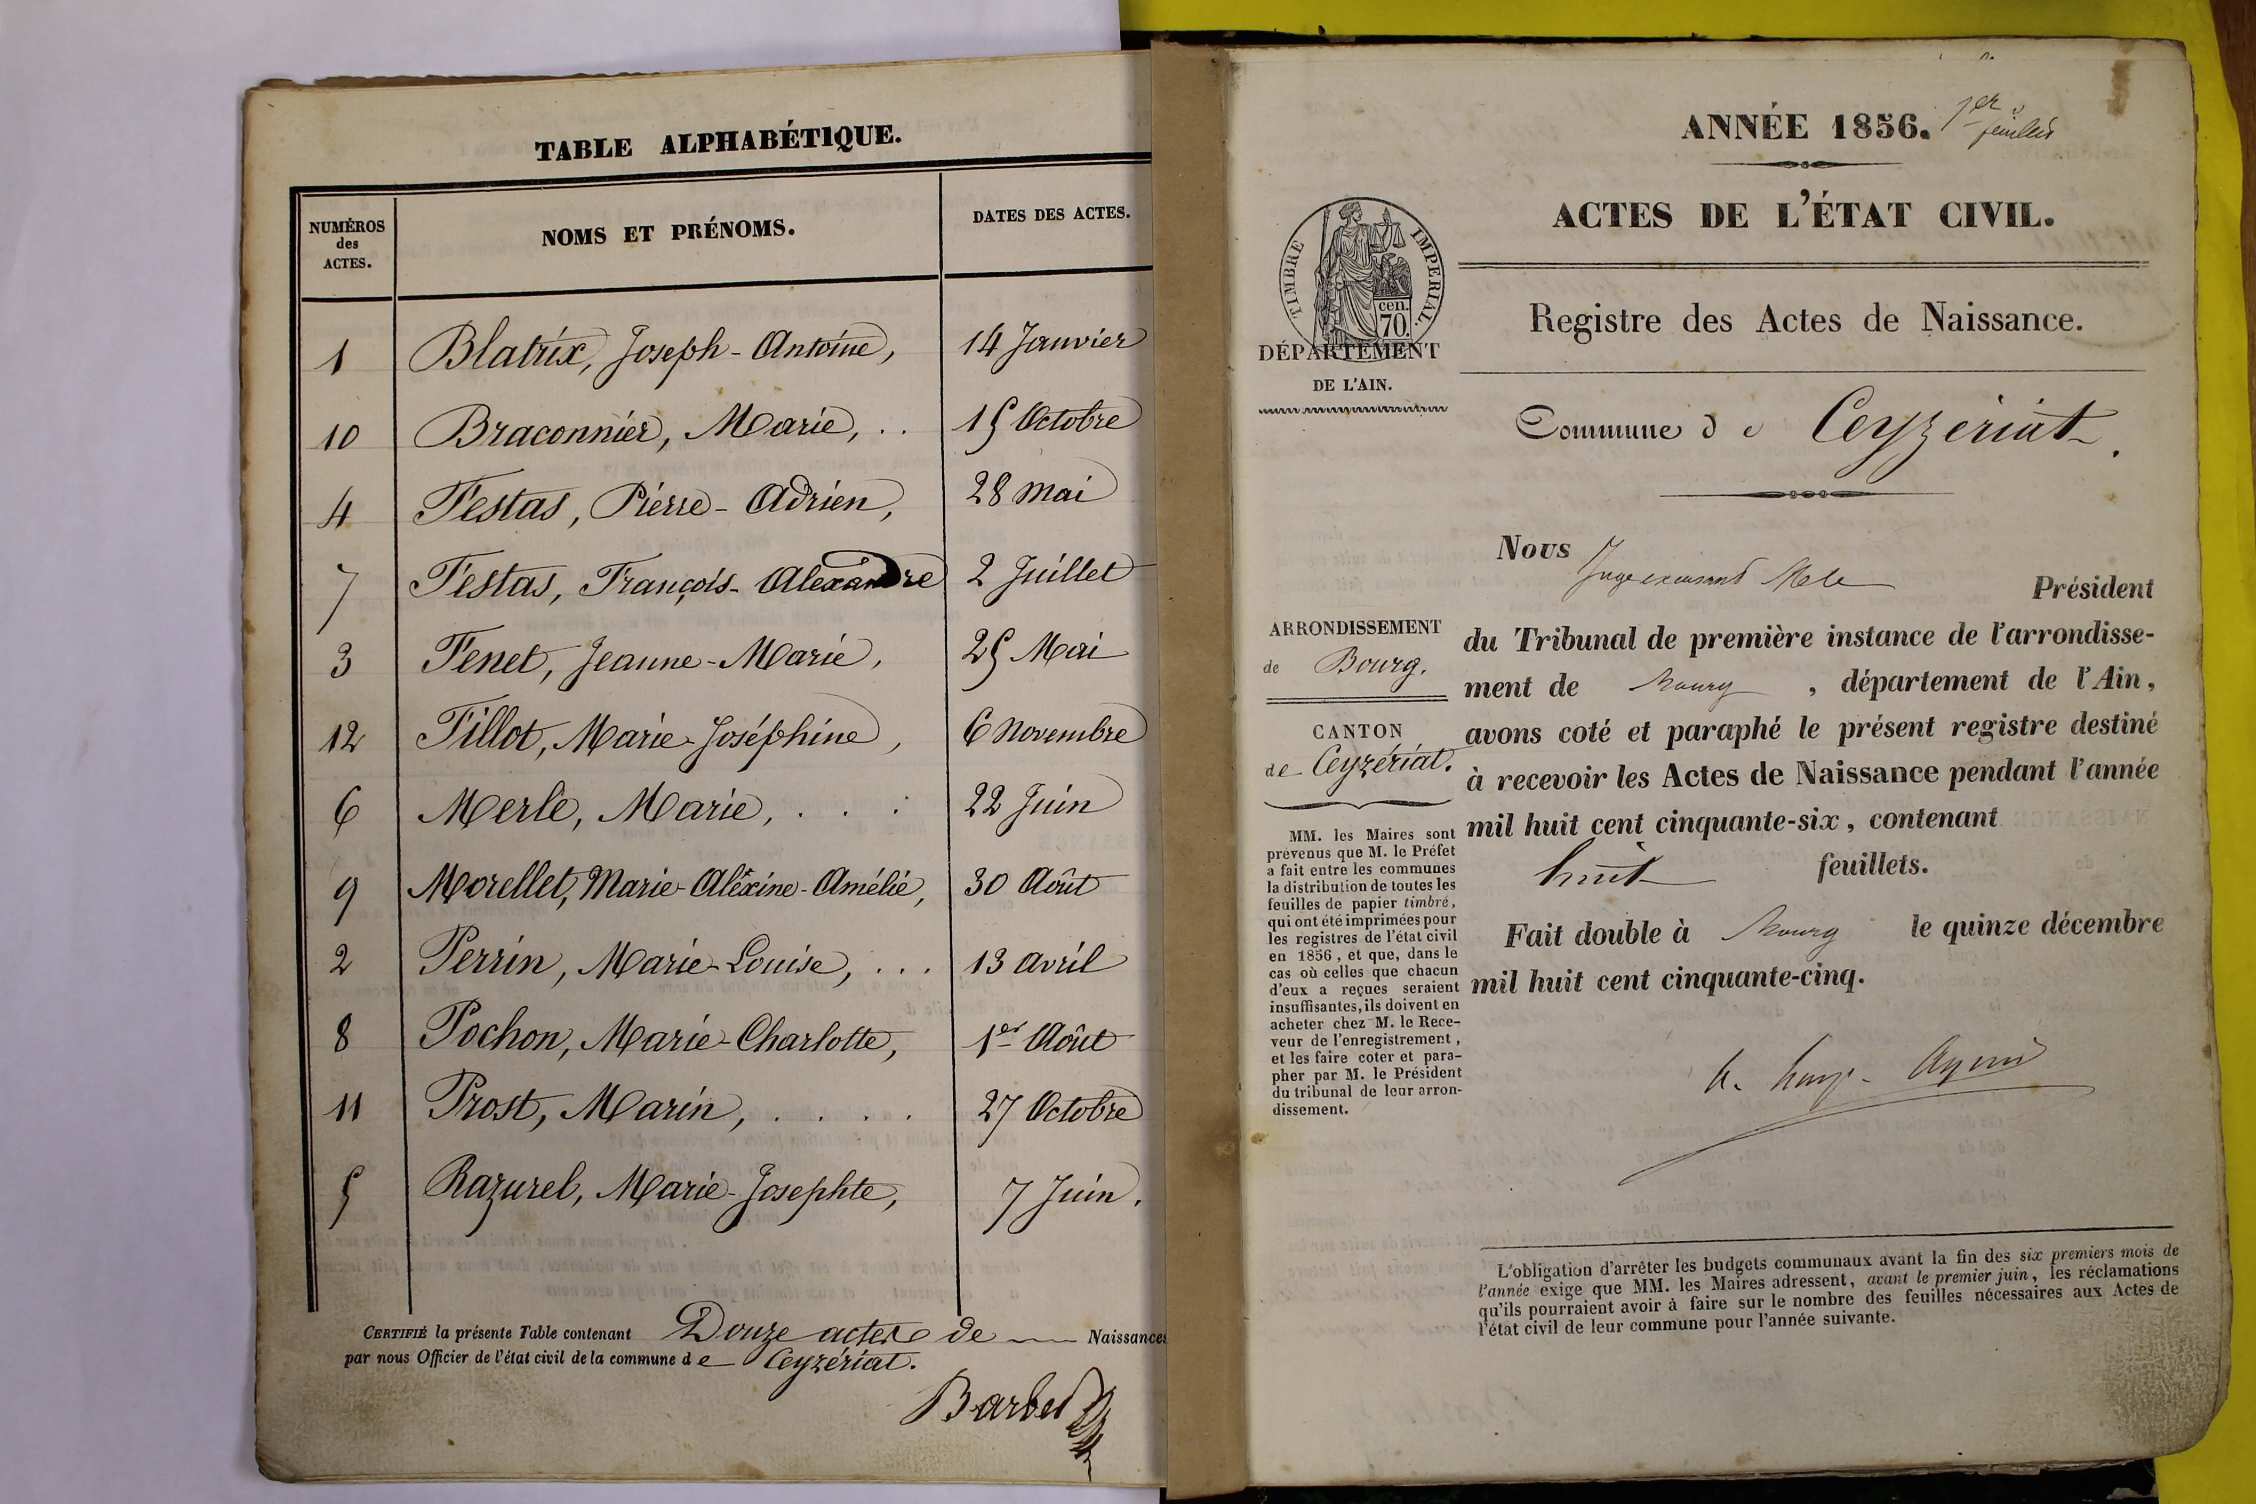 TABLE ALPHABÉTIQUE.
NUMÉROS des ACTES.
NOMS ET PRÉNOMS.
DATES DES ACTES.
1 Blatrix, Joseph-Antoine, 14 Janvier
10 Braconnier, Marie, .. 15 Octobre
4 Festas, Pierre-Adrien, 28 Mai
7 Festas, François-Alexandre 2 Juillet
3 Fenet, Jeanne-Marie, 25 Mai
12 Fillot, Marie-Joséphine, 6 Novembre
6 Merle, Marie, . . . 22 Juin
9 Morellet, Marie-Aléxine-Amélie, 30 Août
2 Perrin, Marie-Louise, ... 13 avril
8 Pochon, Marie-Charlotte, 1er Août
11 Prost, Marin, . . . . 27 Octobre
5 Razurel, Marie-Josephte, 7 Juin.
CERTIFIÉ la présente Table contenant Douze actes de Naissances
par nous Officier de l'état civil de la commune de Ceyzériat.
Barbet
ANNÉE 1856. 1er feuillet
ACTES DE L'ÉTAT CIVIL.
TIMBRE IMPERIAL.
cen.
70.
DÉPARTEMENT
DE L'AIN.
Registre des Actes de Naissance.
Commune de Ceyzériat.
ARRONDISSEMENT
de Bourg.
CANTON
de Ceyzériat.
MM. les Maires sont
prévenus que M. le Préfet
a fait entre les communes
la distribution de toutes les
feuilles de papier timbré,
qui ont été imprimées pour
les registres de l'état civil
en 1856, et que, dans le
cas où celles que chacun
d'eux a reçues seraient
insuffisantes, ils doivent en
acheter chez M. le Rece-
veur de l'enregistrement,
et les faire coter et para-
pher par M. le Président
du tribunal de leur arron-
dissement.
Nous
Président
du Tribunal de première instance de l'arrondisse-
ment de Bourg, département de l'Ain,
avons coté et paraphé le présent registre destiné
à recevoir les Actes de Naissance pendant l'année
mil huit cent cinquante-six, contenant
huit feuillets.
Fait double à Bourg le quinze décembre
mil huit cent cinquante-cinq.
L'obligation d'arrêter les budgets communaux avant la fin des six premiers mois de
l'année exige que MM. les Maires adressent, avant le premier juin, les réclamations
qu'ils pourraient avoir à faire sur le nombre des feuilles nécessaires aux Actes de
l'état civil de leur commune pour l'année suivante.